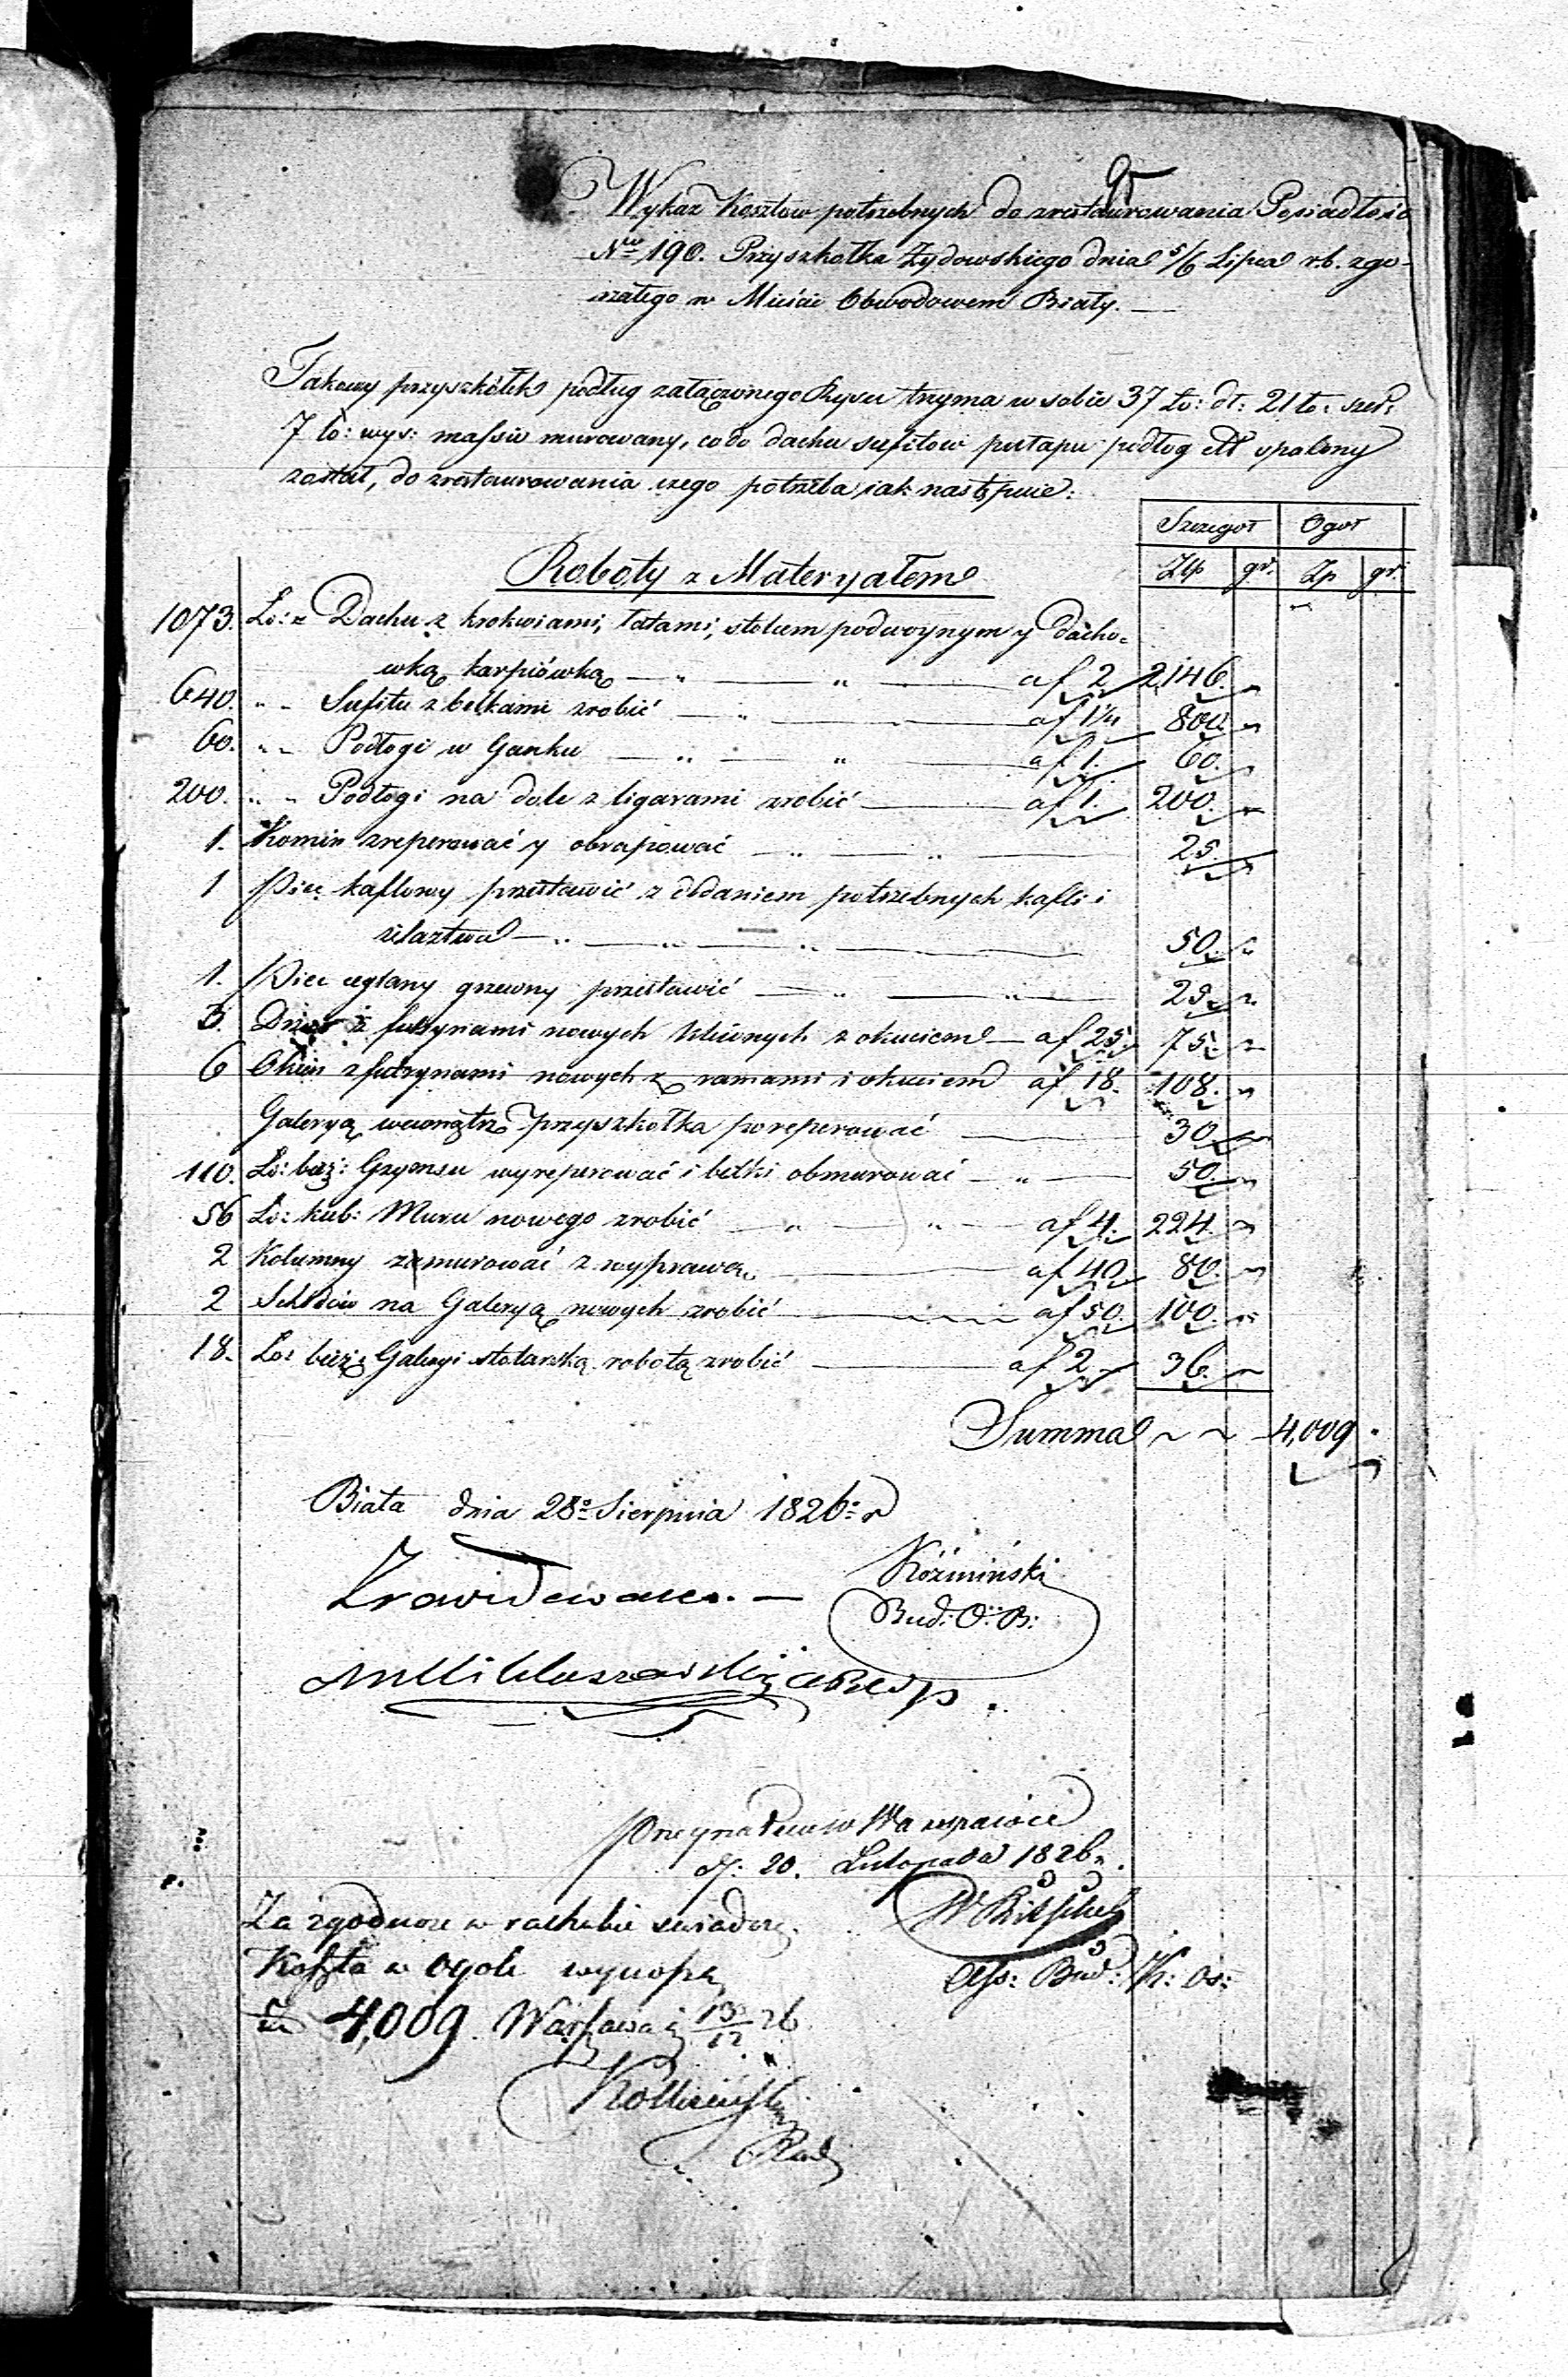 95
Wykaz Kosztów potrzebnych do zrestaurowania Posiadłości
Nro 190. Przyszkołka Żydowskiego dnia 5/6 Lipca r.b. zgo-
rzałego w Mieście Obwodowem Biały. —
Takowy przyszkółek podług załączonego Rysu trzyma w sobie 37 Ło: dł: 21 ło: szer:
7 ło: wys: massiv murowany, co do dachu sufitow podług ett opalony
został, do zrestaurowania czego potrzeba jak następuie:
Szczegoł Ogoł
Złp gr. Zp gr.
Roboty z Materyałem
1073. Ło: Dachu z krokwiami, łatami, stolcem podwoynym y dacho-
wką karpiówką — " — " — af 2 2,146.
640. " - Sufitu z belkami zrobić — " — af 1¼ 800.
60. " - Podłogi w Ganku — " — " — af 1. 60.
200. " - Podłogi na dole z ligarami zrobić — af 1. 200.
1. Komin zreperować y obrapować — " — " — 25.
1 Piec kaflowy przestawić z dodaniem potrzebnych kafli i
żelaztwa — " — " — " — 50.
1. Piec ceglany grzewny przestawić — " — " — 25.
3. Drzwi z futrynami nowych z okuciem — af 25. 75.
6 Okien z futrynami nowych z ramami i okuciem af 18. 108.
Galeryą wewnątrz przyszkołka poreperować — 30
110. Ło: bież: Gzymsu wyreperować i belki obmurować — " — 50.
56 Ło: kub: Muru nowego zrobić — " — " — af 4. 224.
2 Kolumny zamurować z wyprawą — af 40 80.
2 Schodów na Galeryą nowych zrobić — af 50. 100.
18. Ło: bież: Galeryi stolarską robotą zrobić — af 2 36.
Summa 4,009.
Biała dnia 28o Sierpnia 1826o r
Koźmiński
Bud: O: B:
w Warszawie
d: 20. Listopada 1826 r.
Za zgodnosc w rachubie swiadczę
Koszta w ogole wynoszą
4,009. Warszawa 13/12 26
Ass: Bud:
Rad